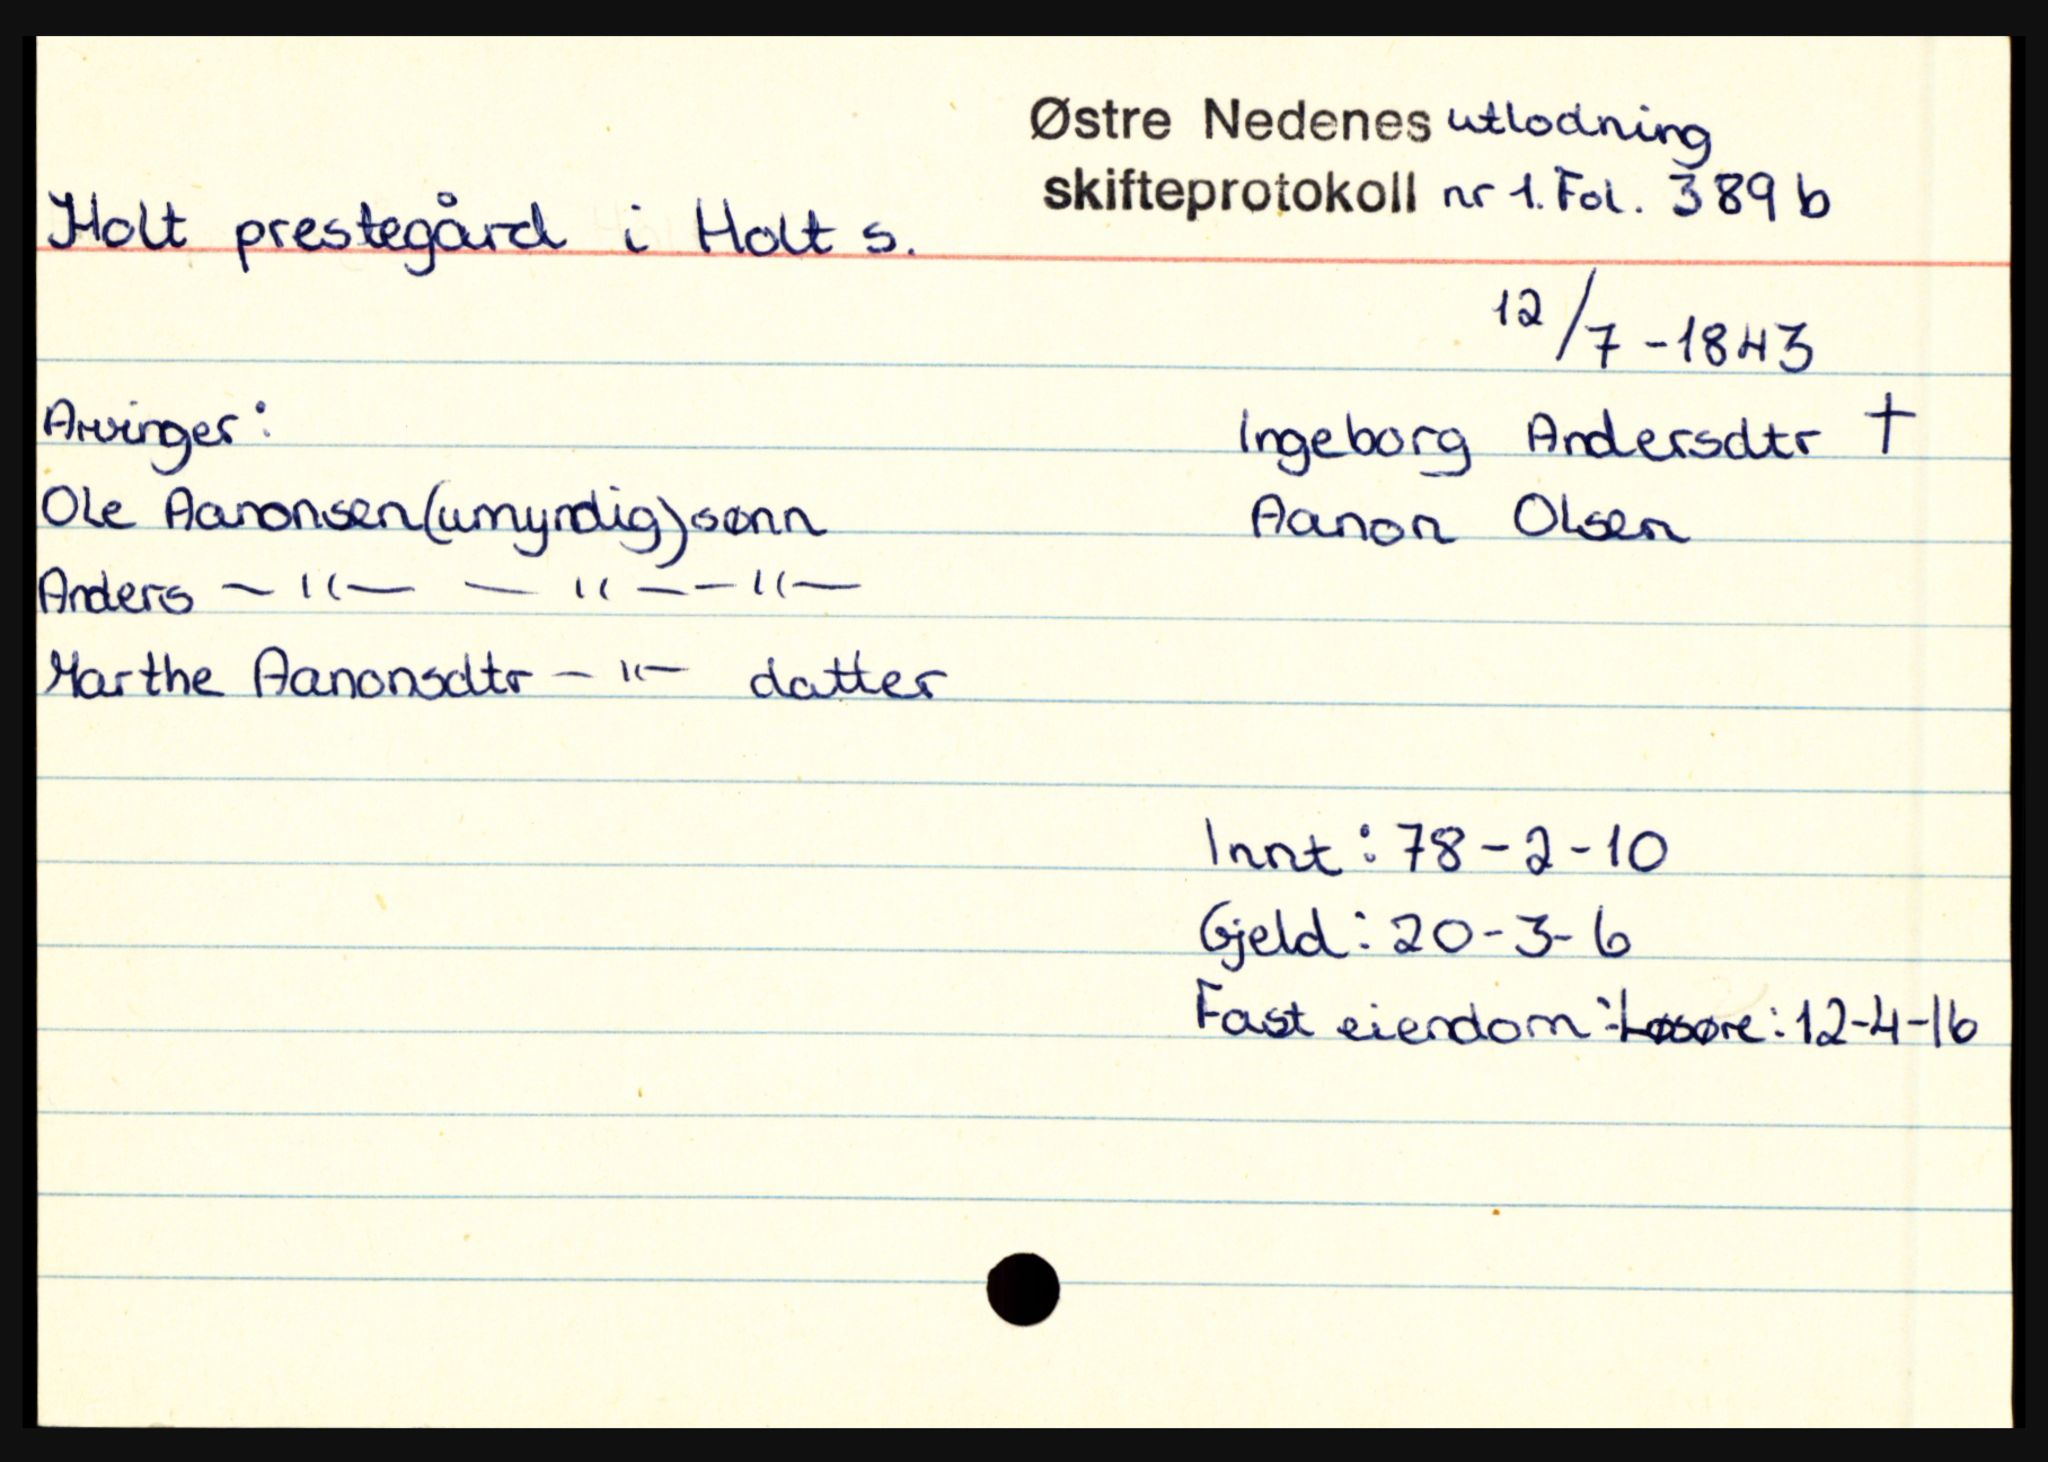 Østre Nedenes utlodning
skifteprotokoll nr 1. Fol. 389 b
Holt prestegård i Holt s.
12/7 - 1843
Arvinger:
Ingeborg Andersdtr †
Ole Aanonsen (umyndig) sønn
Aanon Olsen
Anders — " — — " — — " —
Marthe Aanonsdtr — " — datter
Innt: 78 - 2 - 10
Gjeld: 20 - 3 - 6
Fast eiendom: Løsøre: 12-4-16